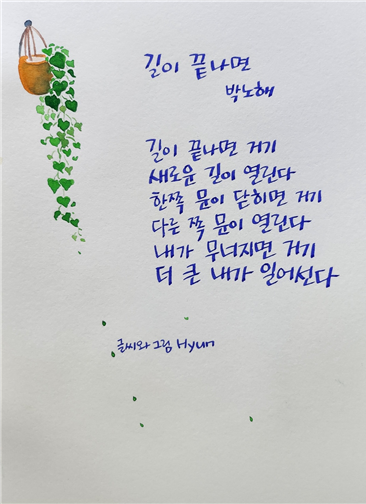 길이 끝나면
박노해
길이 끝나면 거기
새로운 길이 열린다
한쪽 문이 닫히면 거기
다른 쪽 문이 열린다
내가 무너지면 거기
더 큰 내가 일어선다
글씨와 그림 Hyun